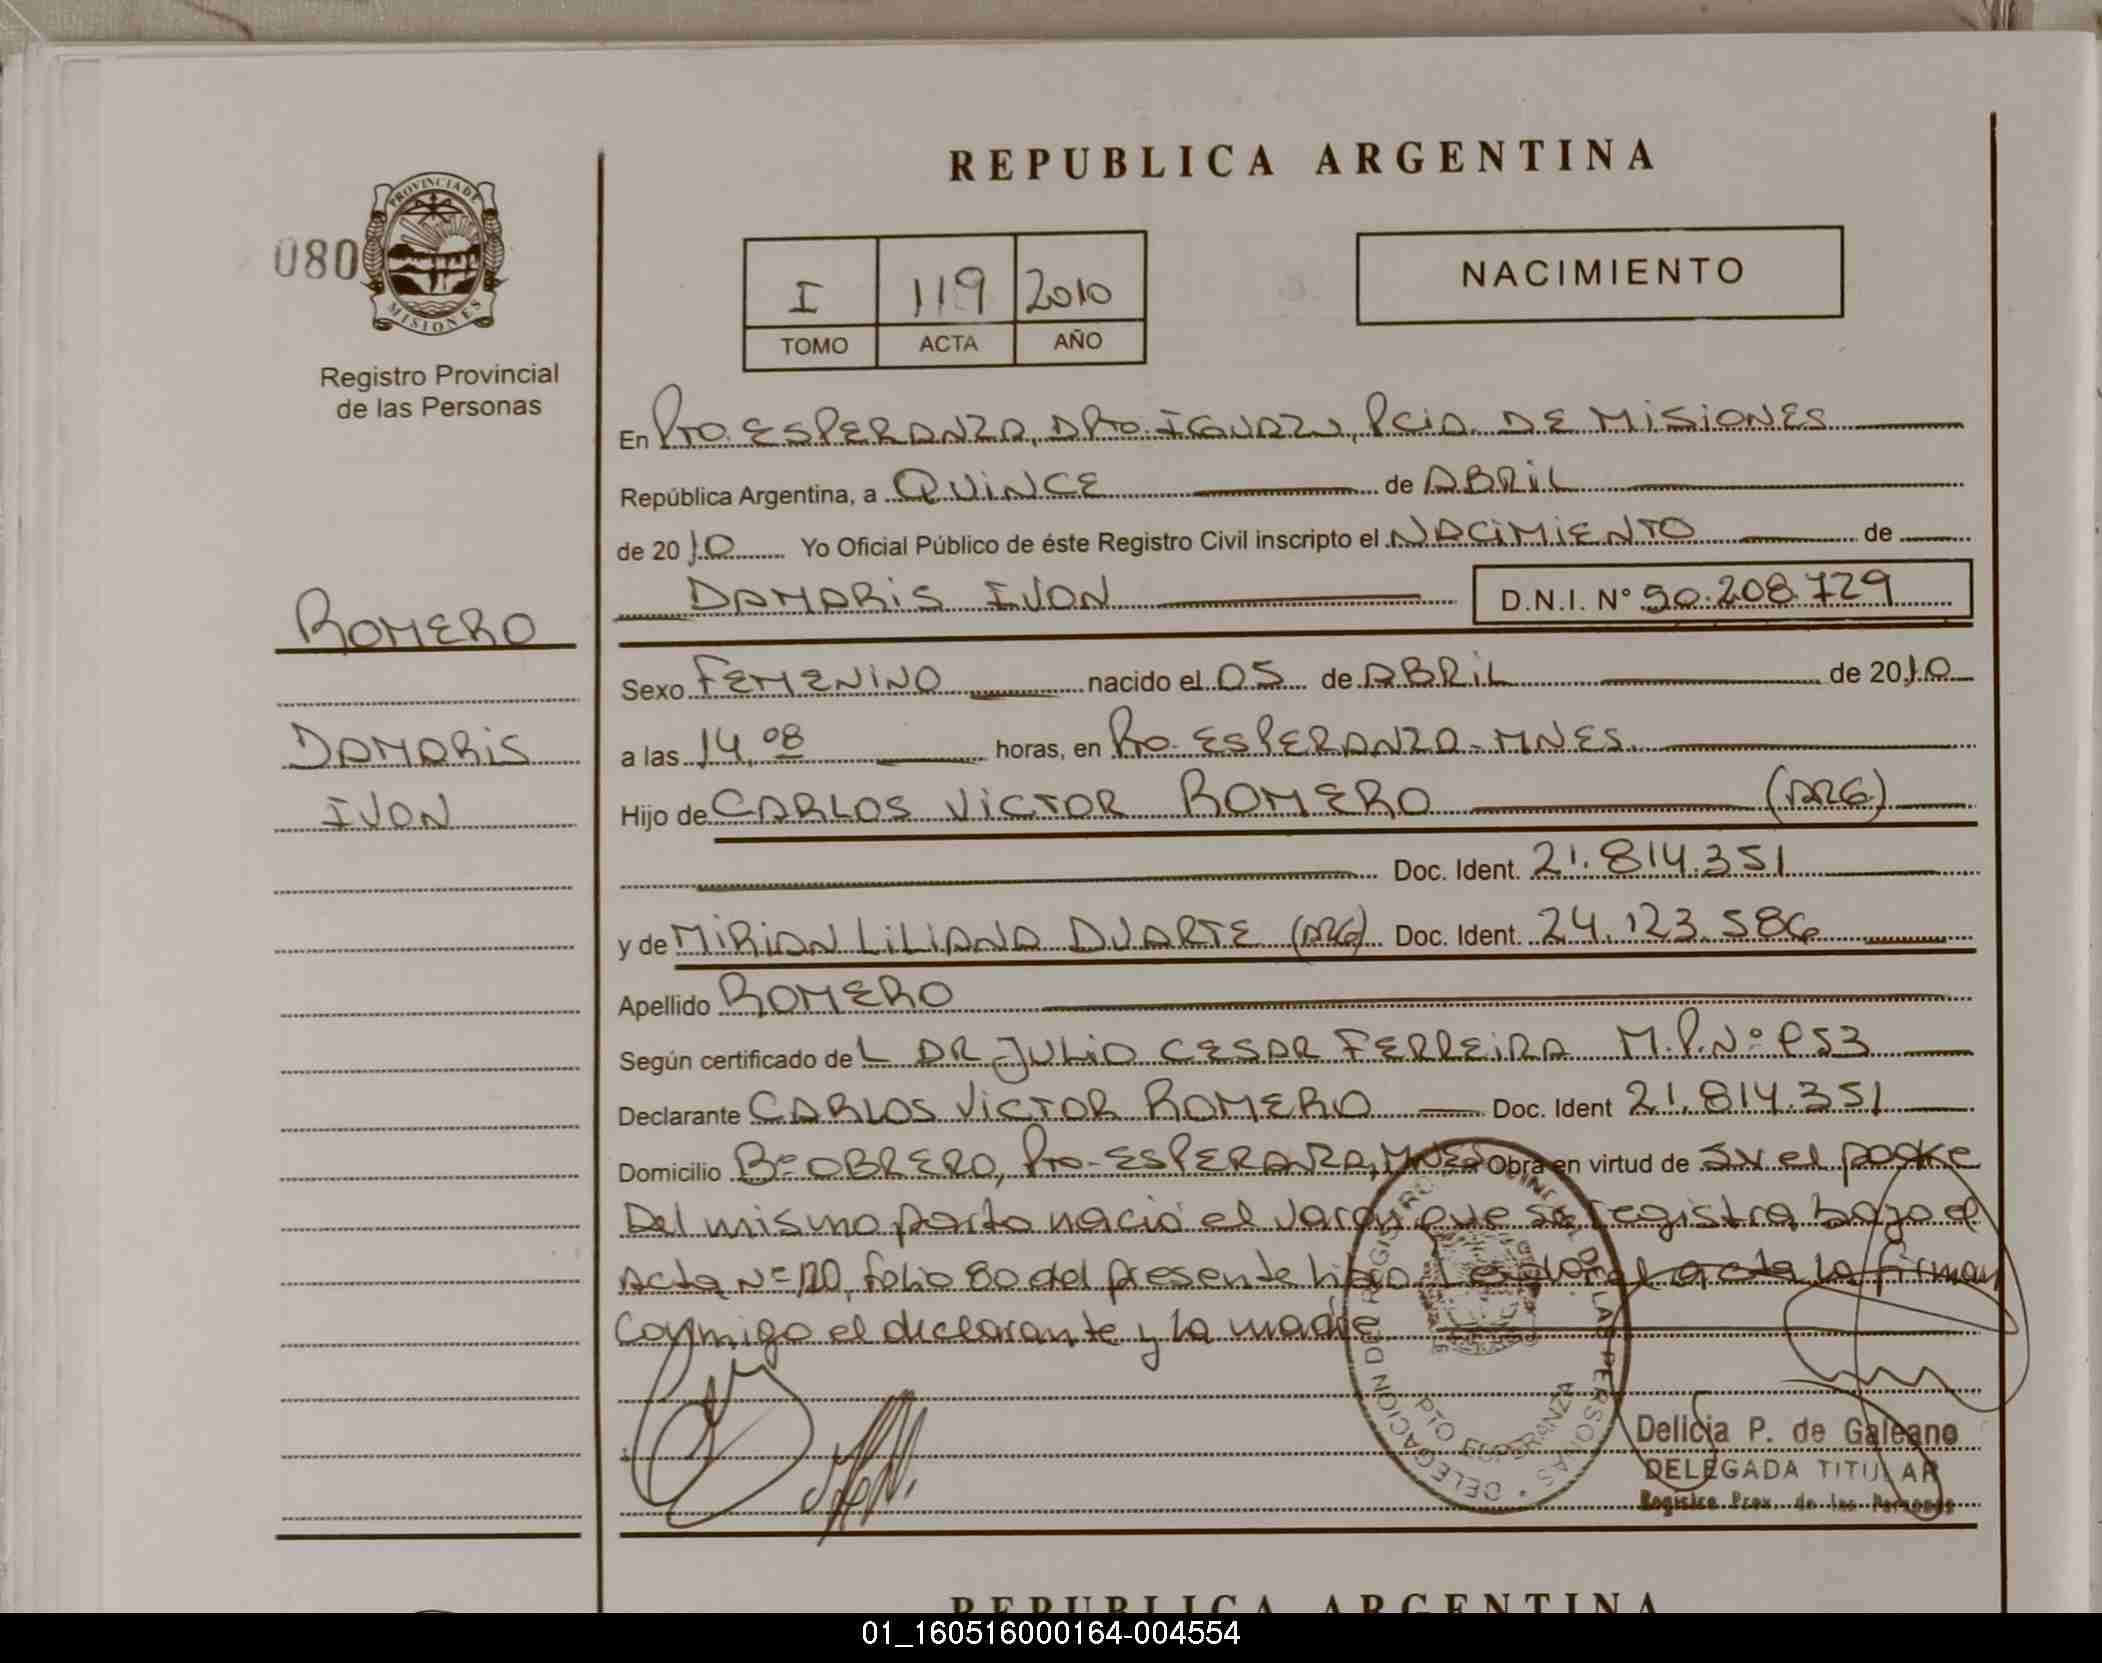 REPUBLICA ARGENTINA
080
PROVINCIA DE
MISIONES
Registro Provincial
de las Personas
I 119 2010
TOMO ACTA AÑO
NACIMIENTO
En Pto. ESPERANZA, DPto. IGUAZU, PCIA. DE MISIONES
República Argentina, a QUINCE de ABRIL
de 2010 Yo Oficial Público de éste Registro Civil inscripto el NACIMIENTO de
DAMARIS IVON D.N.I. N° 50.208.729
ROMERO
DAMARIS
IVON
Sexo FEMENINO nacido el 05 de ABRIL de 2010
a las 14,08 horas, en Pto. ESPERANZA - MNES.
Hijo de CARLOS VICTOR ROMERO (ARG)
Doc. Ident. 21.814.351
y de MIRIAN LILIANA DUARTE (ARG) Doc. Ident. 24.123.586
Apellido ROMERO
Según certificado de L DR. JULIO CESAR FERREIRA M.P.N°
Declarante CARLOS VICTOR ROMERO Doc. Ident 21.814.351
Domicilio B° OBRERO, Pto. ESPERANZA, MNES Obra en virtud de ser el padre
Del mismo parto nació el varon que se registra bajo el
Acta N° 120, folio 80 del presente libro Leida el acta la firman
Conmigo el declarante y la madre
DELEGACION DEL REGISTRO PROVINCIAL DE LAS PERSONAS
PTO ESPERANZA
Delicia P. de Galeano
DELEGADA TITULAR
Registro Prov. de las Personas
REPUBLICA ARGENTINA
01_160516000164-004554